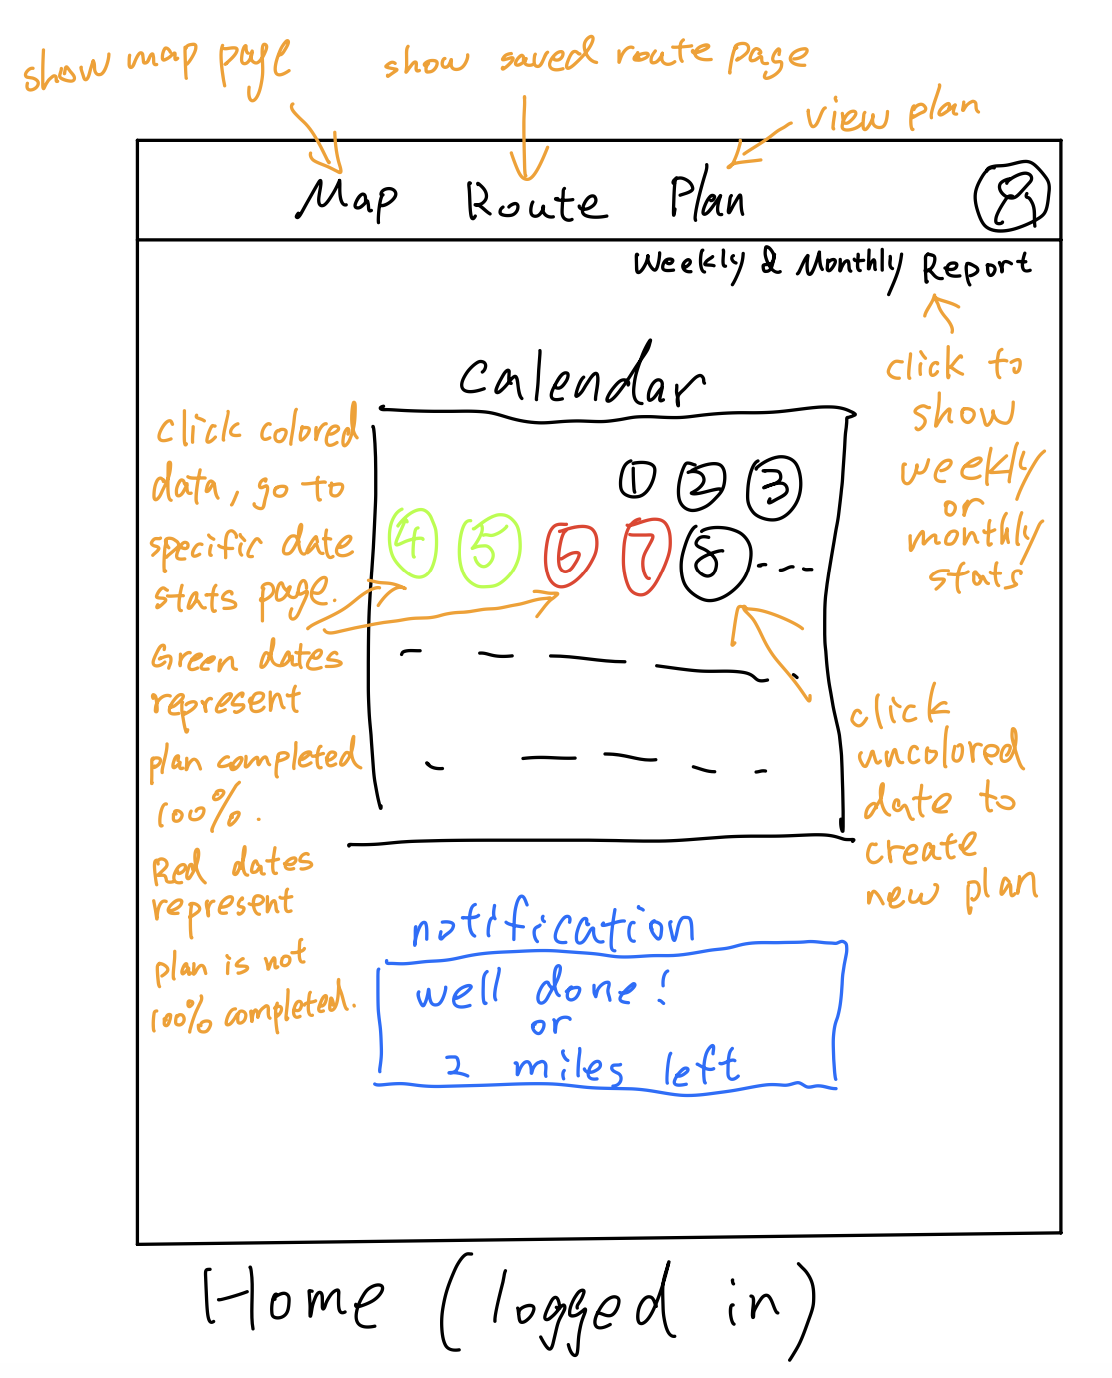 show map page
show saved route page
view plan
Map Route Plan
Weekly & Monthly Report
click to
show
weekly
or
monthly
stats
Calendar
click colored
data, go to
specific date
stats page.
Green dates
represent
plan completed
100%.
Red dates
represent
plan is not
100% completed.
1 2 3
4 5 6 7 8 ...
click
uncolored
date to
create
new plan
notification
well done!
or
2 miles left
Home (logged in)